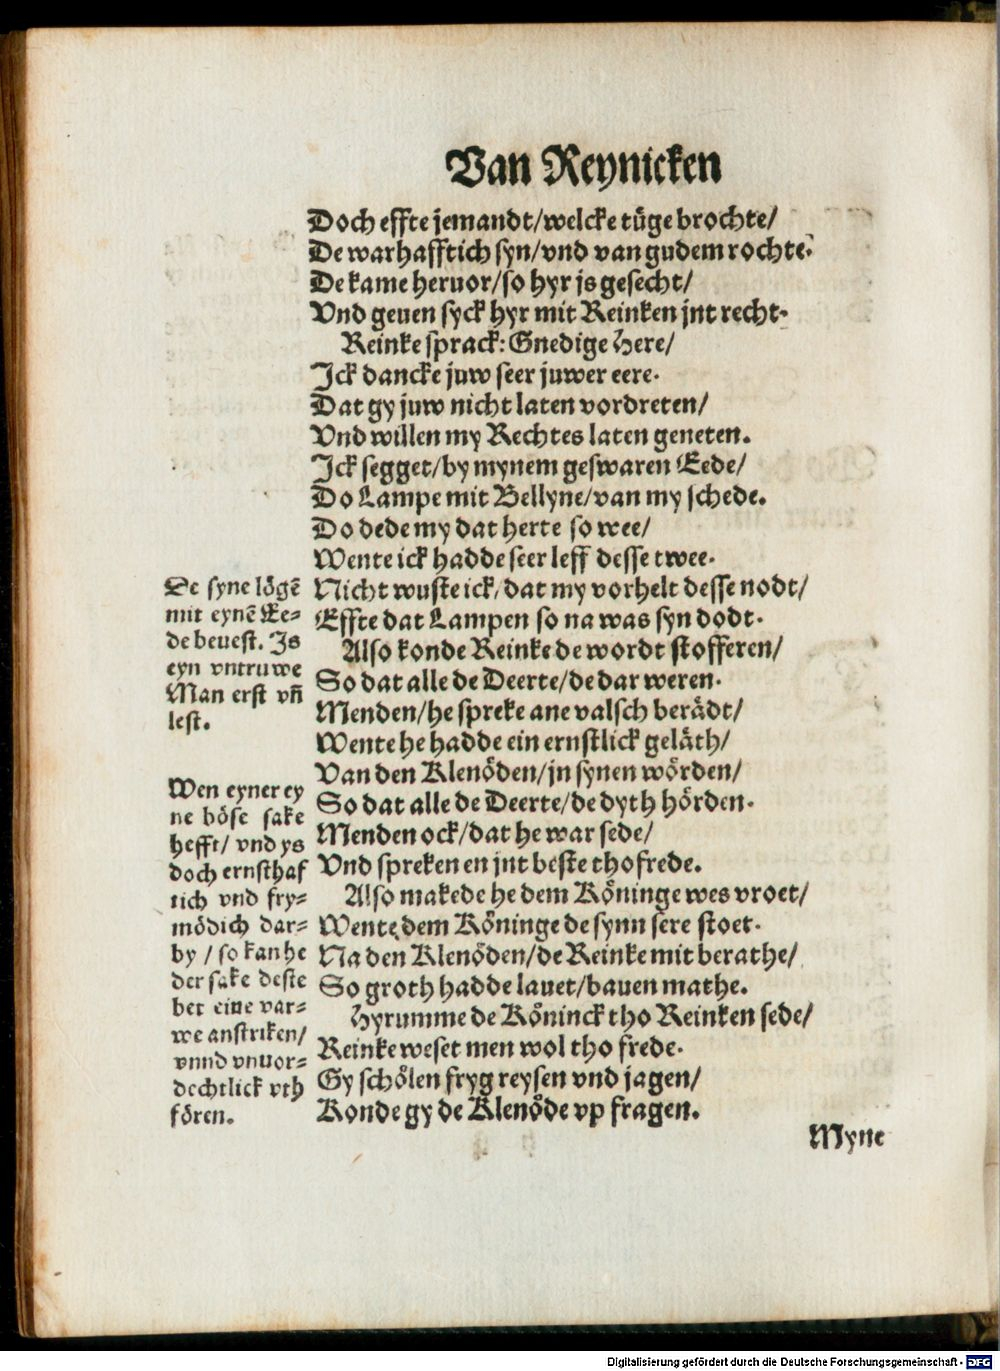 Van Reynicken
Doch effte jemandt/welcke tüge brochte/
De warhafftich syn/vnd van gudem rochte.
De kame heruor/so hyr js gesecht/
Vnd geuen syck hyr mit Reinken jnt recht.
Reinke sprack: Gnedige Here/
Ick dancke juw seer juwer eere.
Dat gy juw nicht laten vordreten/
Vnd willen my Rechtes laten geneten.
Ick segget/by mynem geswaren Eede/
Do Lampe mit Bellyne/van my schede.
Do dede my dat herte so wee/
Wente ick hadde seer leff desse twee.
Nicht wuste ick/dat my vorhelt desse nodt/
Effte dat Lampen so na was syn dodt.
Also konde Reinke de wordt stofferen/
So dat alle de Deerte/de dar weren.
Menden/he spreke ane valsch berädt/
Wente he hadde ein ernstlick geläth/
Van den Klenöden/jn synen wörden/
So dat alle de Deerte/de dyth hörden.
Menden ock/dat he war sede/
Vnd spreken en jnt beste tho frede.
Also makede he dem Köninge wes vroet/
Wente dem Köninge de synn sere stoet.
Na den Klenöden/de Reinke mit berathe/
So groth hadde lauet/bauen mathe.
Hyrumme de Köninck tho Reinken sede/
Reinke weset men wol tho frede.
Gy schölen fryg reysen vnd jagen/
Konde gy de Klenöde vp fragen.
Myne
De syne lögē
mit eynē Ee=
de beuest. Is
eyn vntruwe
Man erst vñ
lest.
Wen eyner ey
ne böse sake
hefft/ vnd ys
doch ernsthaf
tich vnd fry=
mödich dar=
by / so kan he
der sake deste
bet eine var=
we anstriken/
vnnd vnuor=
dechtlick vth
fören.
Digitalisierung gefördert durch die Deutsche Forschungsgemeinschaft - DFG